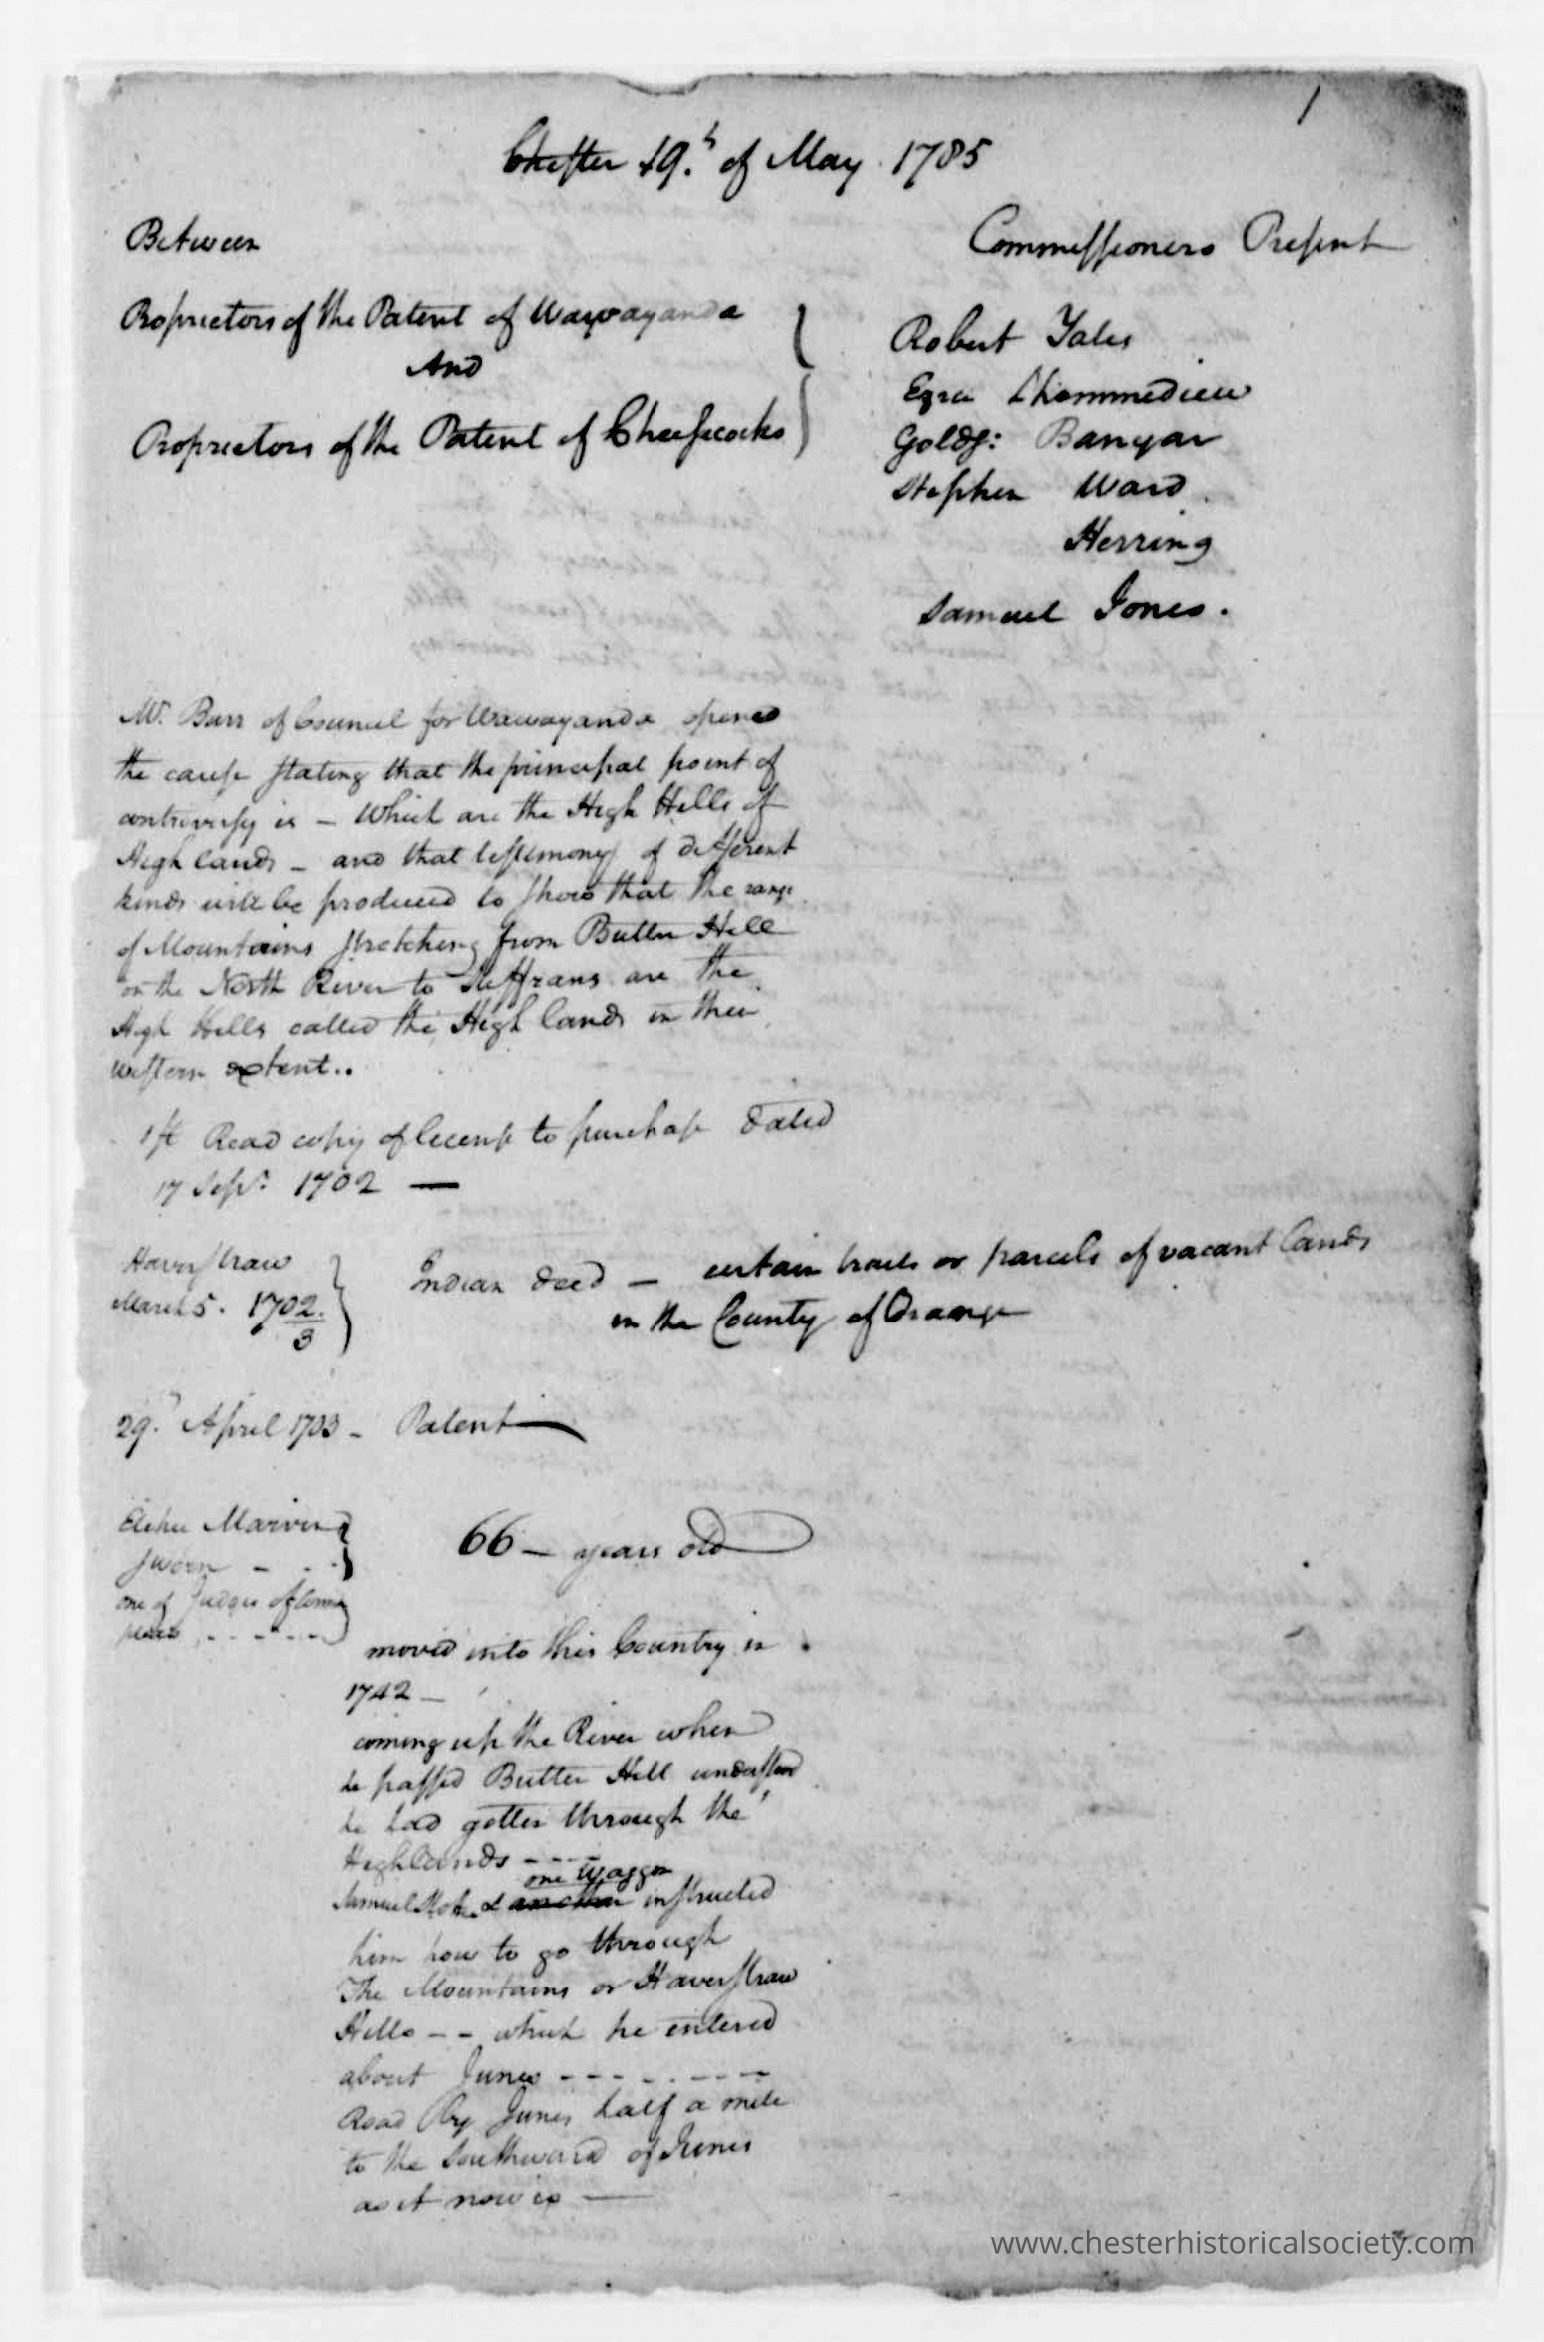 1
Chester 19.th of May 1785
Between
Commissioners Present
Proprietors of the Patent of Wawayanda
And
Proprietors of the Patent of Cheesecocks
Robert Yates
Ezra Lhommedieu
Goldsb: Banyar
Stephen Ward
Herring
Samuel Jones.
Mr. Burr of Councel for Wawayanda opened
the cause stating that the principal point of
controversy is – Which are the High Hills of
High lands – and that testimony of different
kinds will be produced to show that the range
of Mountains stretching from Butter Hill
on the North River to Suffrans are the
High Hills called the High lands in their
western extent..
1st Read copy of licence to purchase dated
17 Sepr. 1702 —
Haverstraw
March 5. 1702/3
Indian deed – certain tracts or parcels of vacant lands
in the County of Orange
29. April 1703 – Patent
Elihu Marvin
sworn – . .
one of Judges of
pleas . - - - -
66 – years old
moved into this Country in
1742 –
coming up the River when
he passed Butter Hill understood
he had gotten through the
Highlands - - - -
one Waggon
Samuel & another instructed
him how to go through
The Mountains or Haverstraw
Hills – – which he entered
about Junes - - - - - - - -
Road by Junes half a mile
to the Southward of Junes
as it now is —
www.chesterhistoricalsociety.com